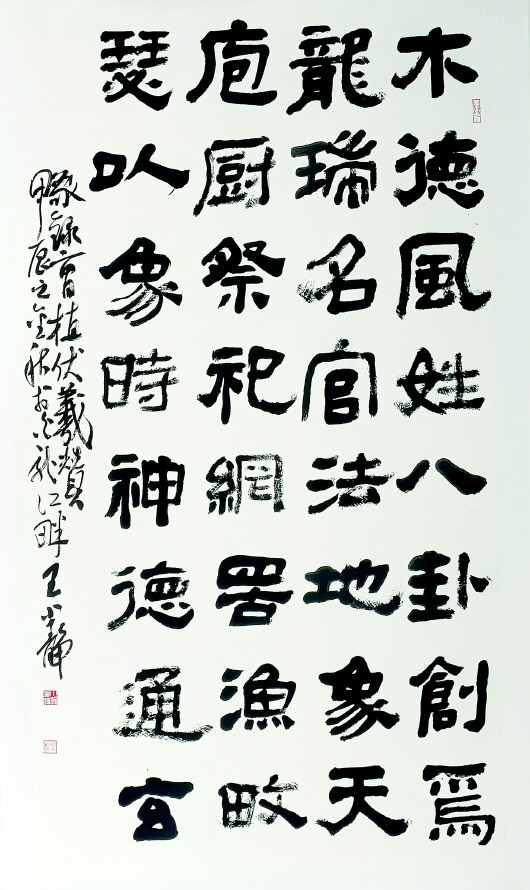 木德風姓八卦創焉
龍瑞名官法地象天
庖厨祭祀網罟漁畋
瑟以象時神德通玄
錄曹植伏羲贊
甲辰之金秋於龍江畔王小靜